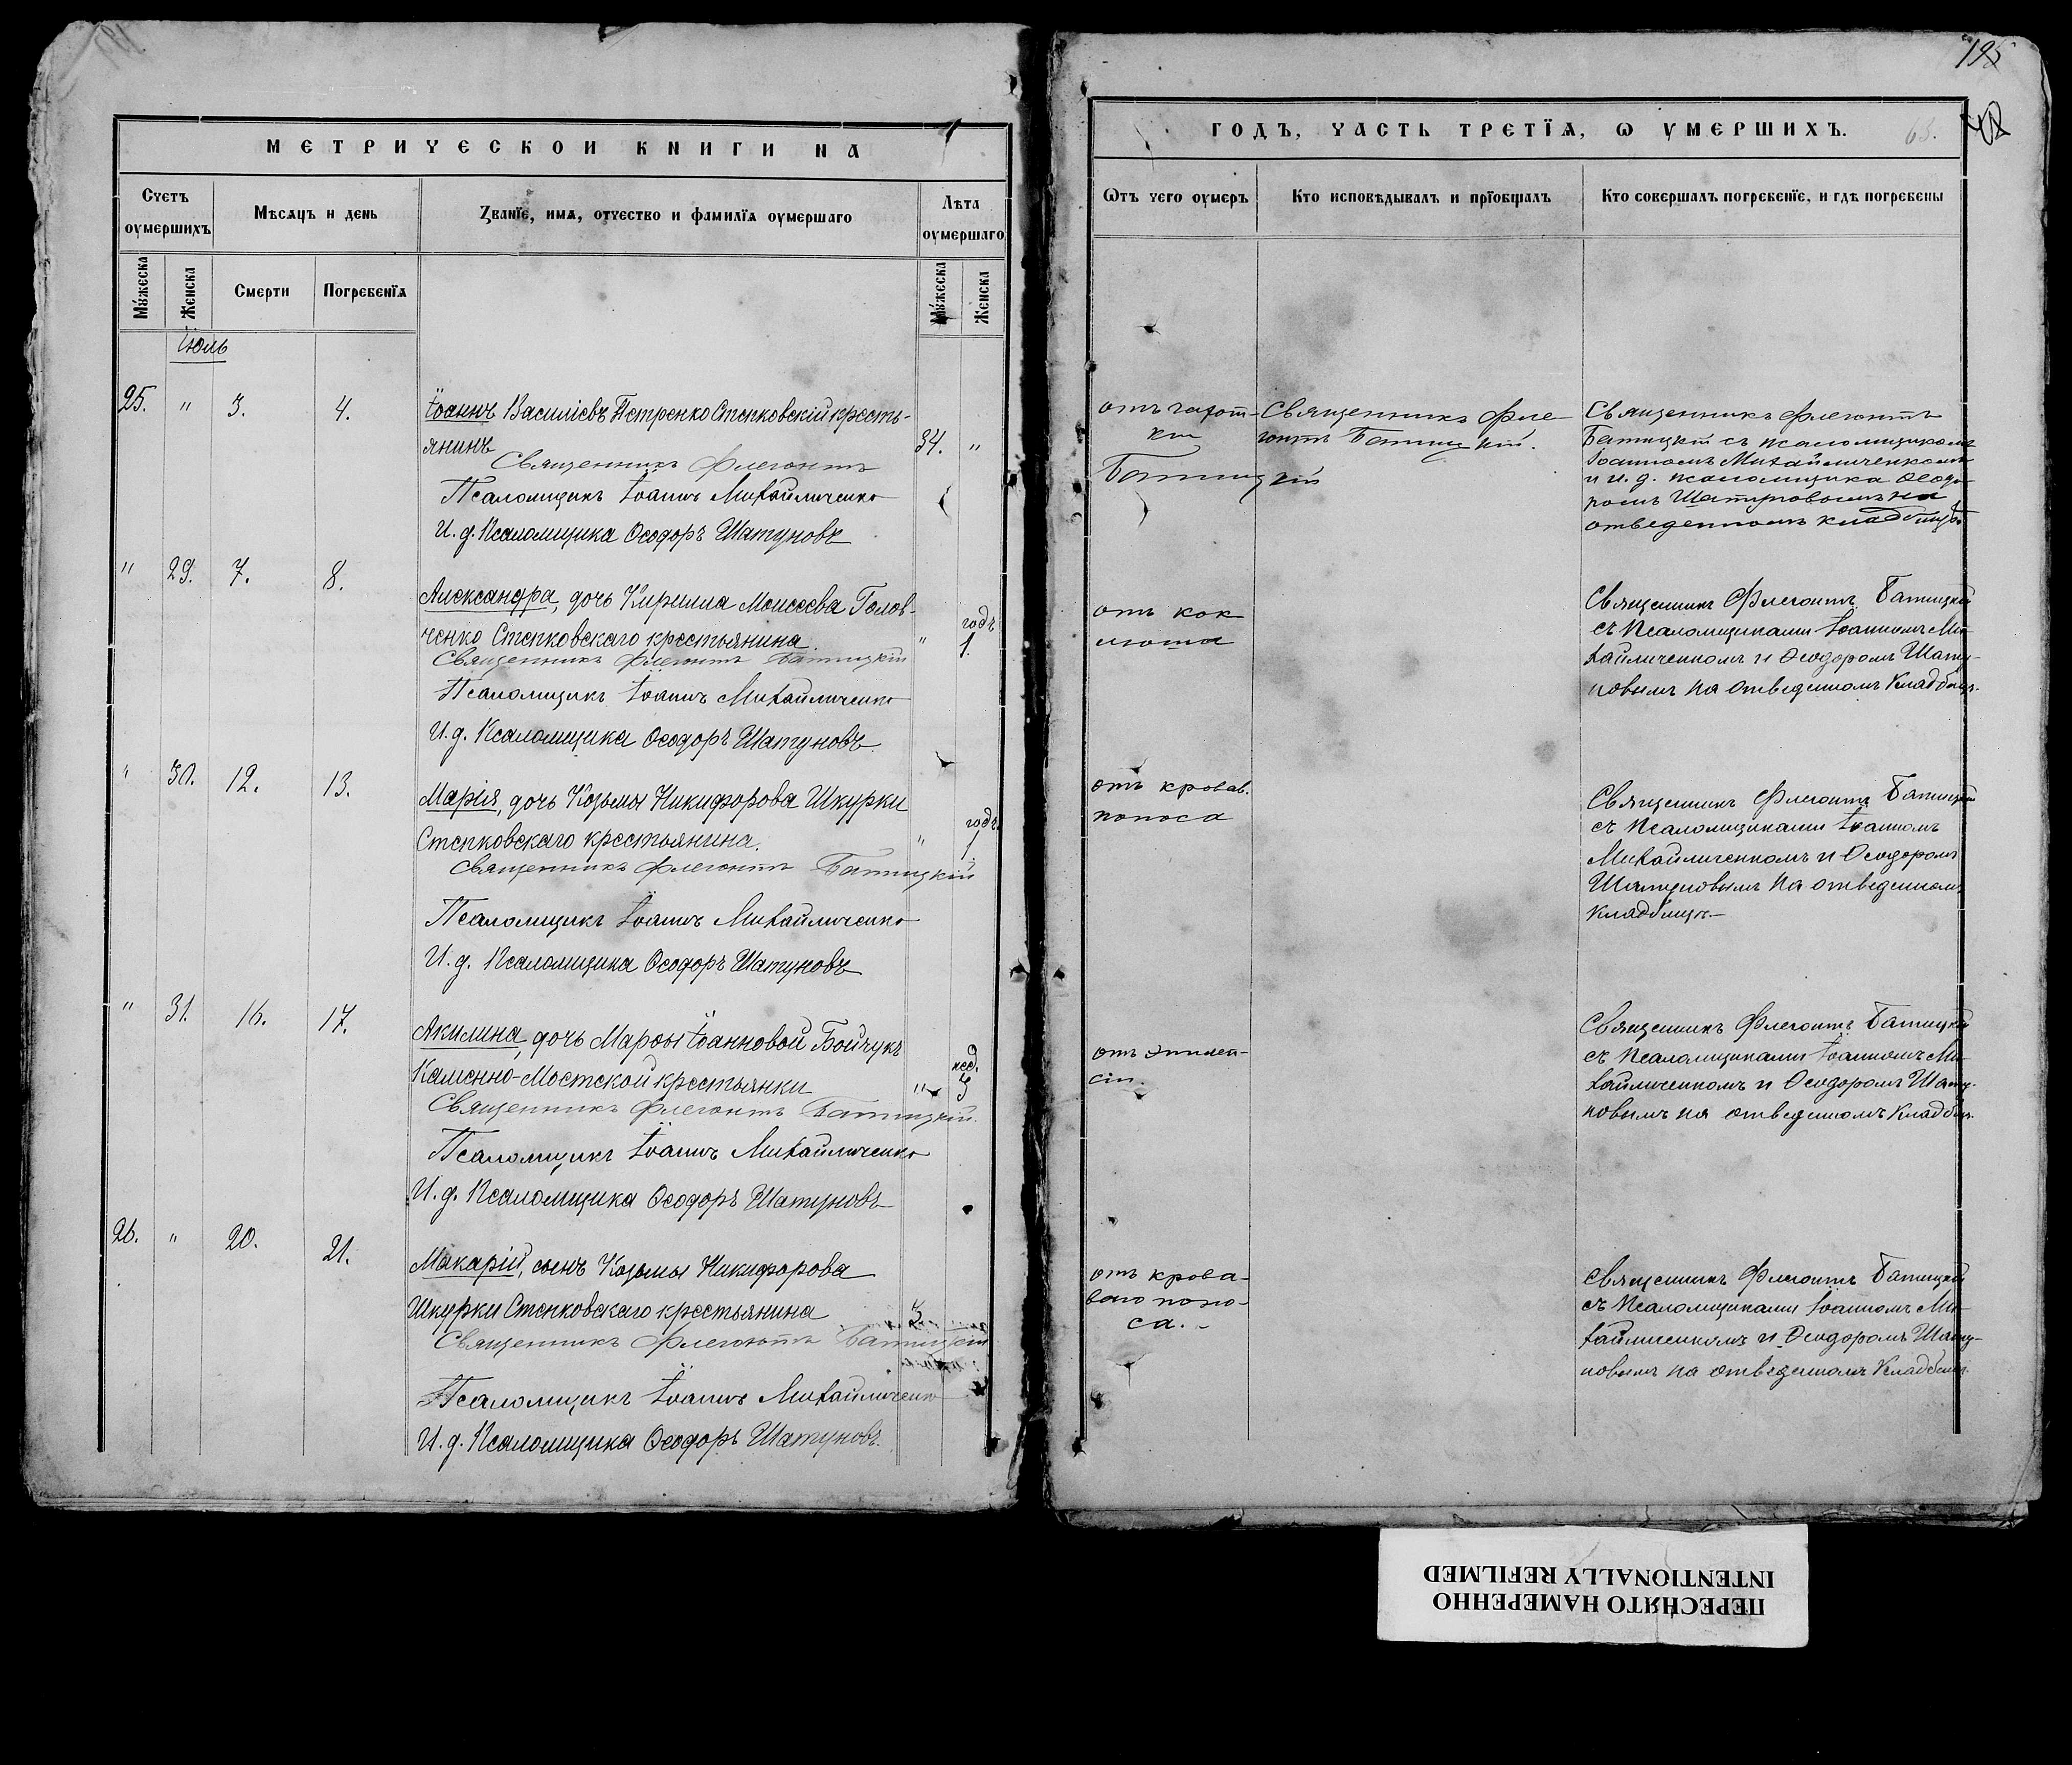 195
МЕТРИЧЕСКОЙ КНИГИ НА
Счетъ оумершихъ
Мѣсяцъ и день
Званіе, имя, отчество и фамилія оумершаго
Лѣта оумершаго
Мужеска
Женска
Смерти
Погребенія
Мужеска
Женска
Іюль
25. " 3. 4. Іоаннъ Василіевъ Петренко Степковскій кресть-
янинъ 34. "
Священникъ Флегонтъ
Батицкій
Псаломщикъ Іоаннъ Михайличенко
И. д. Псаломщика Ѳеодоръ Шатуновъ
" 29. 7. 8.
Александра, дочь Кирилла Моисеева Голов-
ченко Степковскаго крестьянина. " годъ 1.
Священникъ Флегонтъ Батицкій
Псаломщикъ Іоаннъ Михайличенко
И. д. Псаломщика Ѳеодоръ Шатуновъ
" 30. 12. 13.
Марія, дочь Козьмы Никифорова Шкурки
Степковскаго крестьянина. " годъ 1
Священникъ Флегонтъ Батицкій
Псаломщикъ Іоаннъ Михайличенко
И. д. Псаломщика Ѳеодоръ Шатуновъ
" 31. 16. 17.
Акилина, дочь Марѳы Іоанновой Бойчукъ
Каменно-Мостской крестьянки " нед.
Священникъ Флегонтъ Батицкій.
Псаломщикъ Іоаннъ Михайличенко
И. д. Псаломщика Ѳеодоръ Шатуновъ
26. " 20. 21.
Макарій, сынъ Козьмы Никифорова
Шкурки Степковскаго крестьянина 3
Священникъ Флегонтъ Батицкій
Псаломщикъ Іоаннъ Михайличенко
И. д. Псаломщика Ѳеодоръ Шатуновъ.
ГОДЪ, ЧАСТЬ ТРЕТІЯ, Ѡ УМЕРШИХЪ.
63.
Ѿтъ чего оумеръ
Кто исповѣдывалъ и пріобщалъ
Кто совершалъ погребеніе, и гдѣ погребены
отъ чахот-
ки
Священникъ Фле
гонтъ Батицкій.
Священникъ Флегонтъ
Батицкій съ псаломщикомъ
Іоанномъ Михайличенкомъ
и и. д. псаломщика Ѳеодо-
ромъ Шатуновымъ на
отведенномъ кладбищѣ
отъ кок
люша
Священникъ Флегонтъ Батицкій
съ Псаломщиками Іоанномъ Ми-
хайличенкомъ и Ѳеодоромъ Шату-
новымъ на отведенномъ Кладбищѣ.
отъ кровав.
поноса
Священникъ Флегонтъ Батицкій
съ Псаломщиками Іоанномъ
Михайличенкомъ и Ѳеодоромъ
Шатуновымъ на отведенномъ
Кладбищѣ.—
отъ эпилеп-
сіи.
Священникъ Флегонтъ Батицкій
съ Псаломщиками Іоанномъ Ми-
хайличенкомъ и Ѳеодоромъ Шату-
новымъ на отведенномъ Кладбищ.
отъ крова-
ваго поно-
са.-
Священникъ Флегонтъ Батицкій
съ Псаломщиками Іоанномъ Ми-
хайличенкомъ и Ѳеодоромъ Шату-
новымъ на отведенномъ Кладбищѣ.
ПЕРЕСНЯТО НАМЕРЕННО
INTENTIONALLY REFILMED